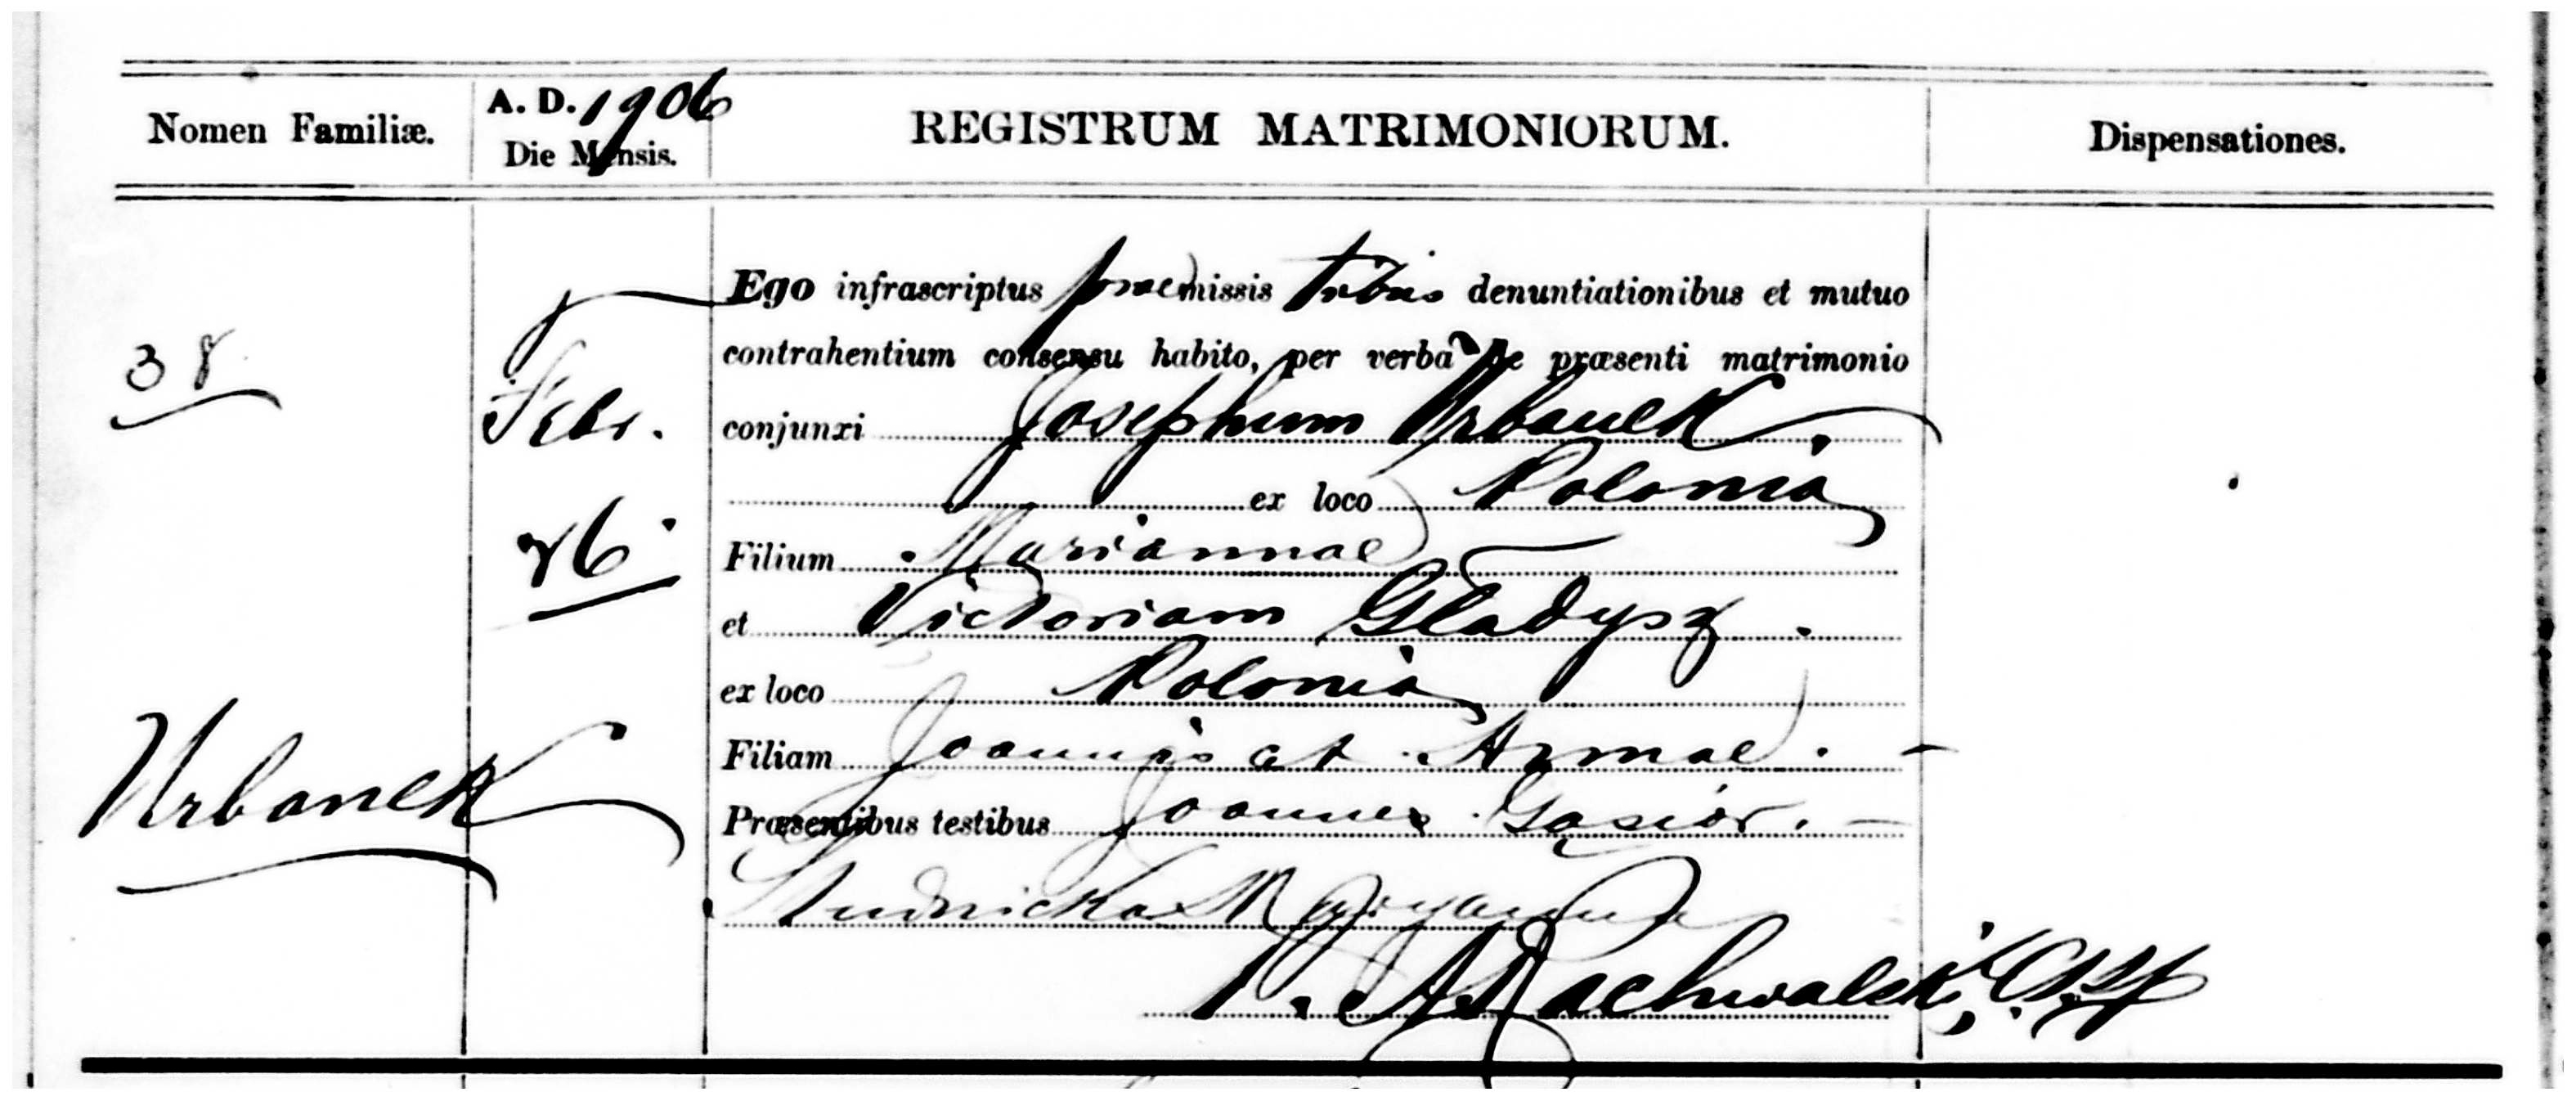 Nomen Familiæ.
A. D. 1906
Die Mensis.
REGISTRUM MATRIMONIORUM.
Dispensationes.
38
Febr.
26.
Urbanek
Ego infrascriptus praemissis tribus denuntiationibus et mutuo
contrahentium consensu habito, per verba de præsenti matrimonio
conjunxi Josephum Urbanek
ex loco Polonia
Filium Mariannae
et Victoriam Gladysz.
ex loco Polonia
Filiam Joannis et Annae. -
Præsentibus testibus Joannes Gąsiór. -
Studnicka Maryanna
P. A. Rachwalski,